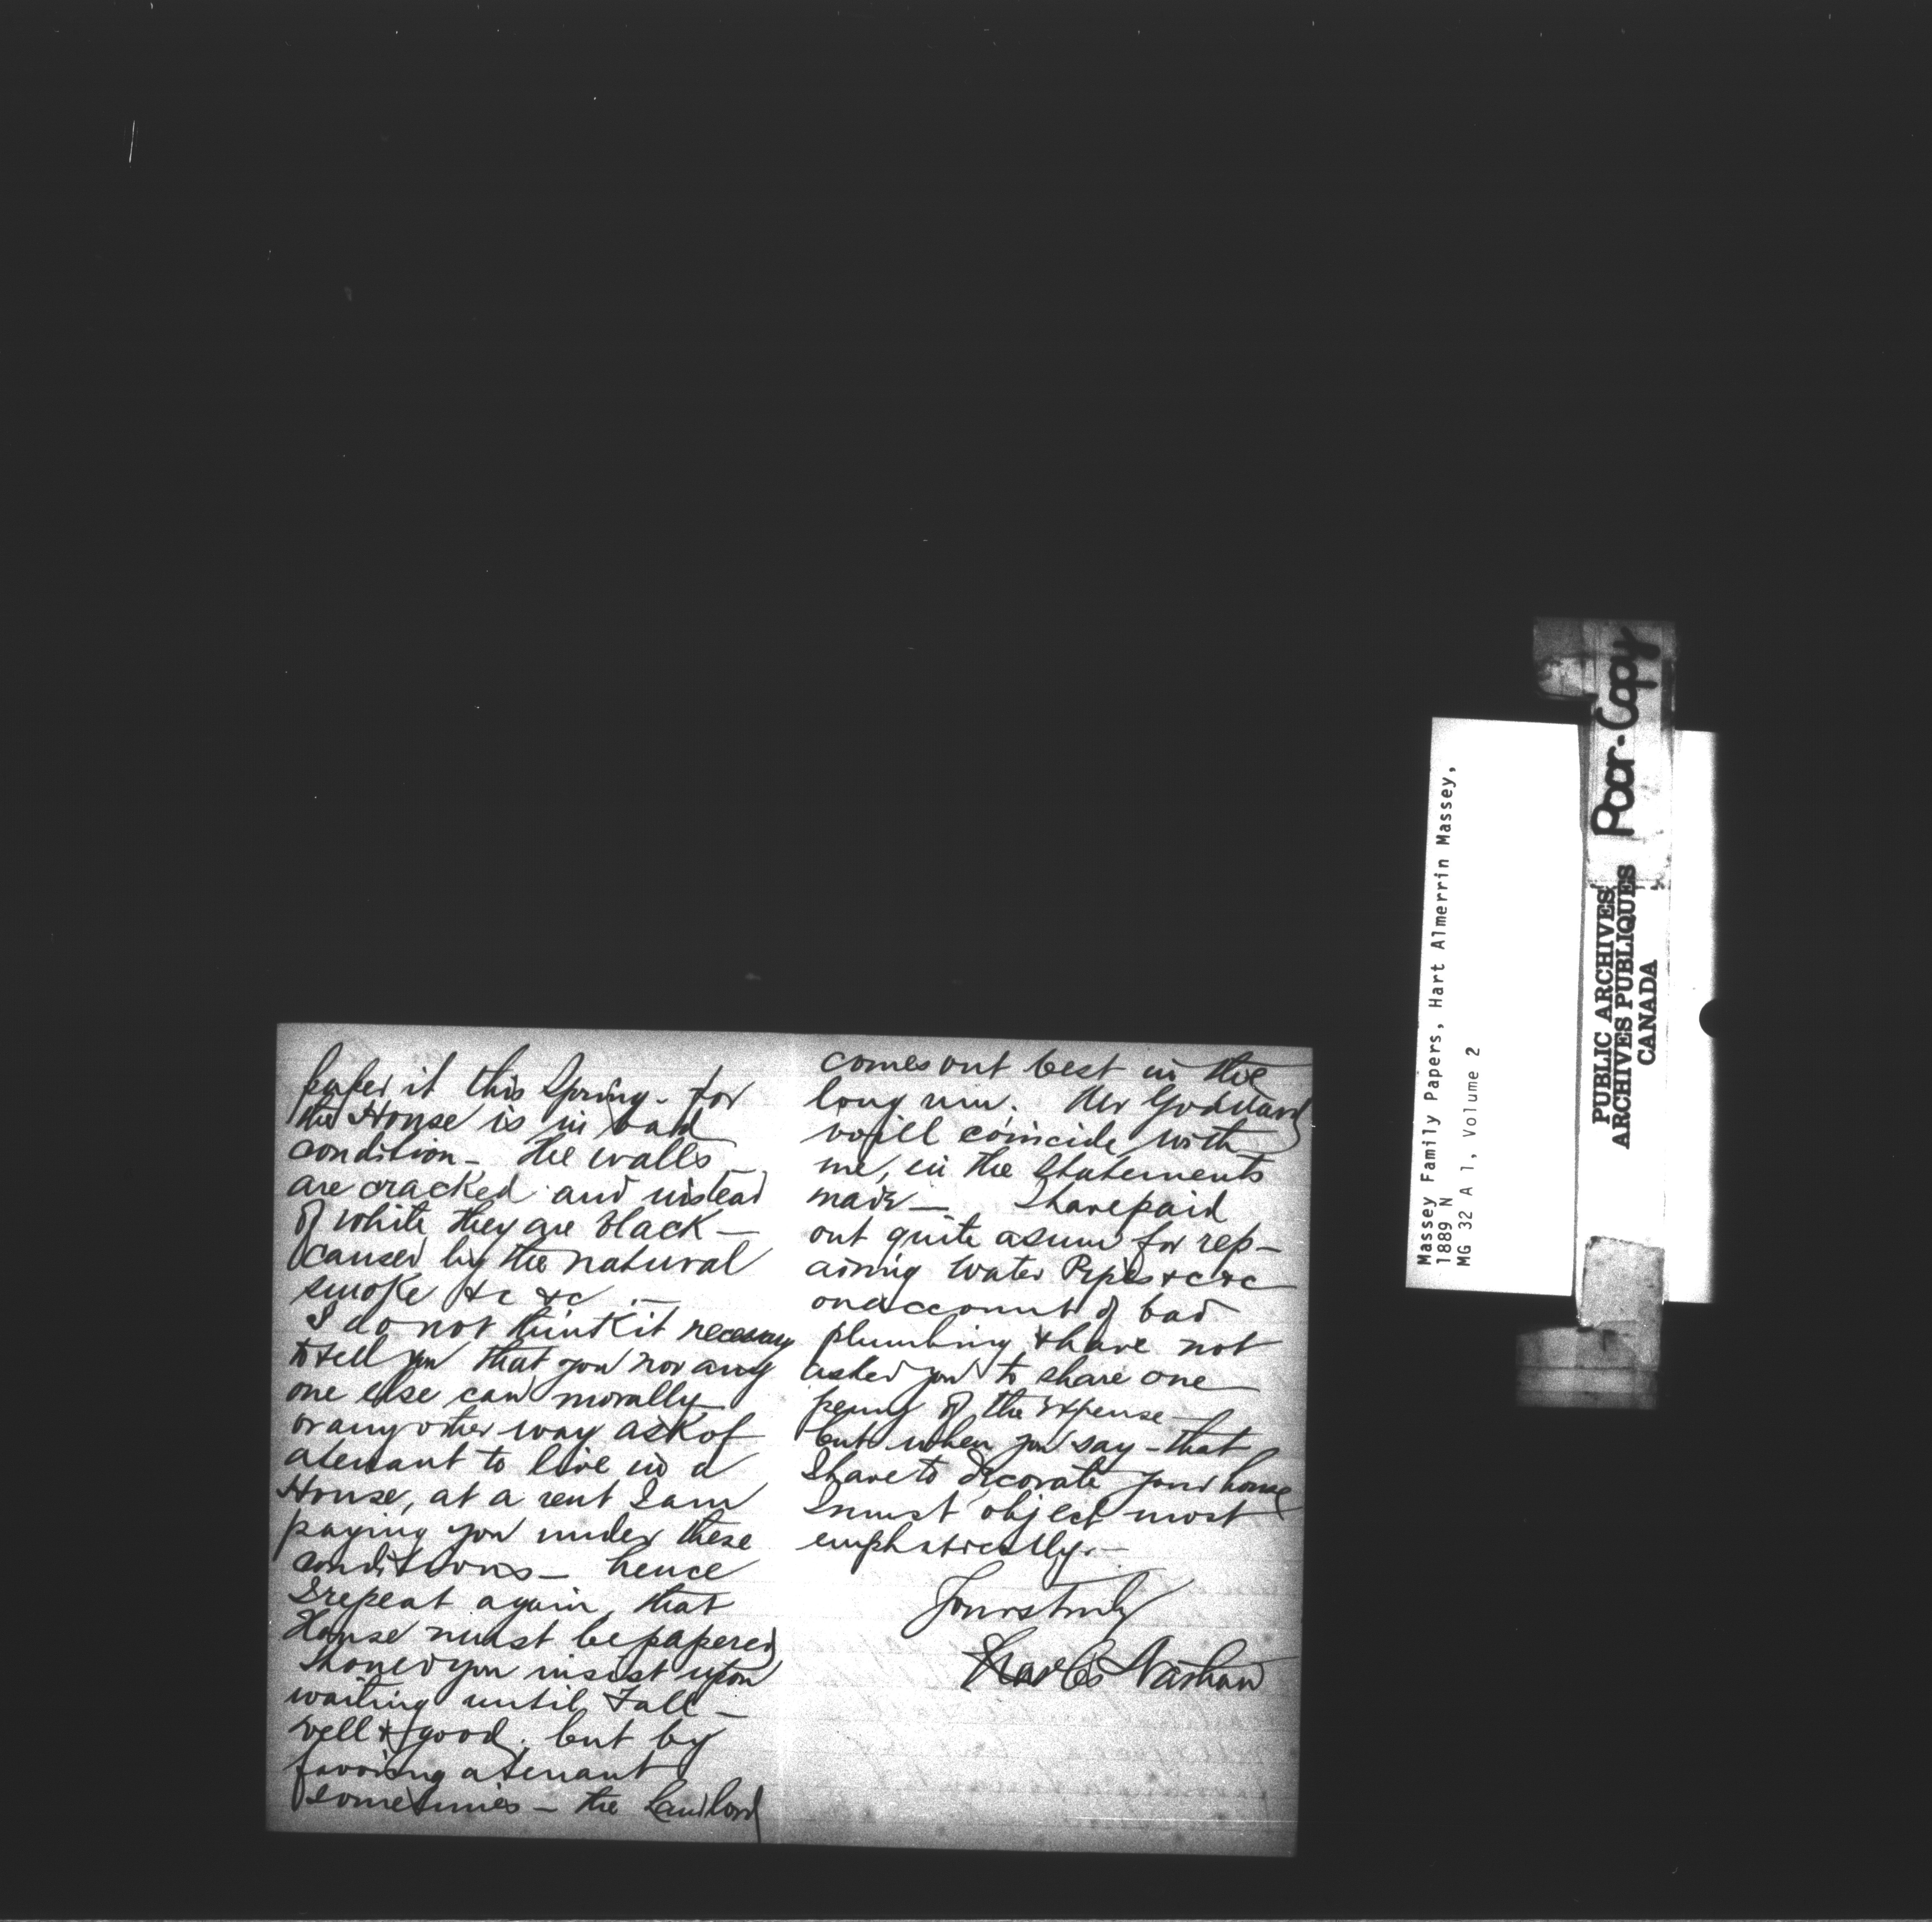 paper it this Spring - for
the House is in bad
condition - the walls
are cracked and instead
of white they are black -
caused by the natural
smoke &c &c -
I do not think it necessary
to tell you that you nor any
one else can morally
or any other way ask of
a tenant to live in a
House, at a rent I am
paying you under these
conditions - hence
I repeat again, that
House must be papered
Should you insist upon
waiting until Fall -
well & good, but by
favoring a tenant
sometimes - the Landlord
comes out best in the
long run. Mr Goddard
will coincide with
me, in the statements
made - I have paid
out quite a sum for rep-
airing Water Pipes &c &c
on account of bad
plumbing & have not
asked you to share one
penny of the expense -
but when you say - that
I have to decorate your house
I must object most
emphatically. -
Yours truly
Charles Nathan
Massey Family Papers, Hart Almerrin Massey,
1889 N
MG 32 A 1, Volume 2
Poor-Copy
PUBLIC ARCHIVES
ARCHIVES PUBLIQUES
CANADA